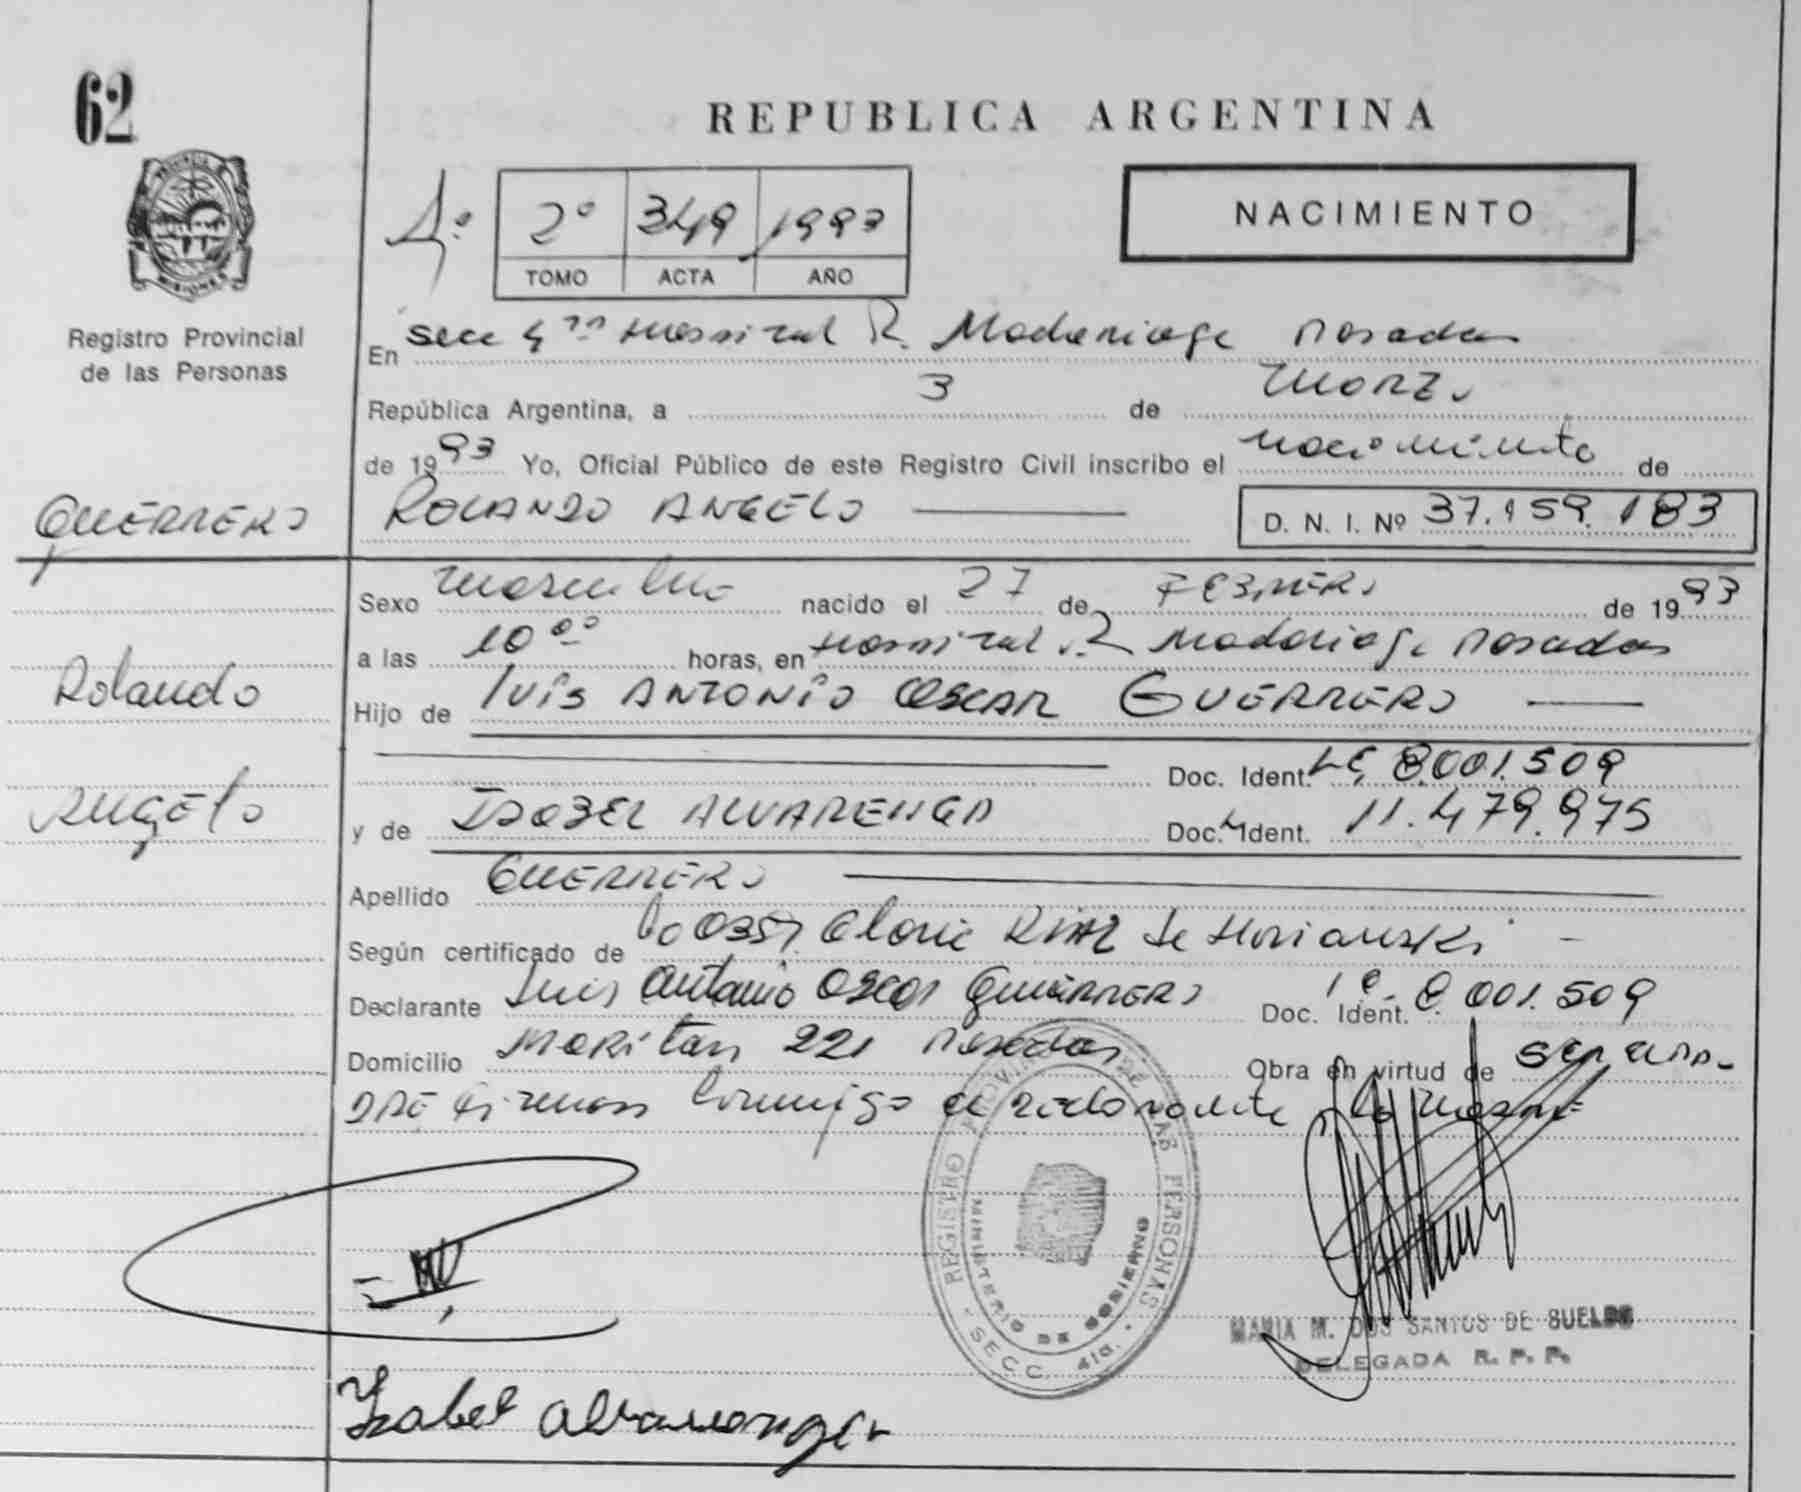 62
REPUBLICA ARGENTINA
PROVINCIA
MISIONES
Registro Provincial
de las Personas
Aº
2º 349 1993
TOMO ACTA AÑO
NACIMIENTO
En Secc 4ta Hospital R. Madariaga Posadas
República Argentina, a 3 de Marzo
de 1993 Yo, Oficial Público de este Registro Civil inscribo el nacimiento de
GUERRERO
ROLANDO ANGELO
D. N. I. Nº 37.159.183
Sexo masculino nacido el 27 de FEBRERO de 1993
a las 10 00 horas, en Hospital R Madariaga Posadas
Rolando
Hijo de LUIS ANTONIO OSCAR GUERRERO
Doc. Ident. LE 8.001.509
Angelo
y de ISABEL ALVARENGA Doc. Ident. 11.479.975
Apellido GUERRERO
Según certificado de de
Declarante Luis Antonio Oscar Guerrero Doc. Ident. LE. 8.001.509
Domicilio 221 Posadas Obra en virtud de ser el pa-
dre Firman conmigo el declarante y la madre
REGISTRO PROVINCIAL DE LAS PERSONAS
MINISTERIO DE GOBIERNO
SECC. 4ta.
MARIA M. DOS SANTOS DE SUELDO
DELEGADA R. P. P.
Izabel alvarenga